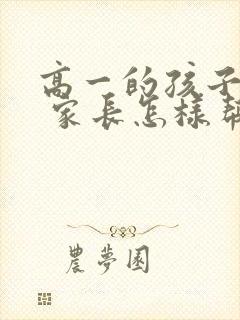 高一的孩子
家長怎樣幫
農夢園